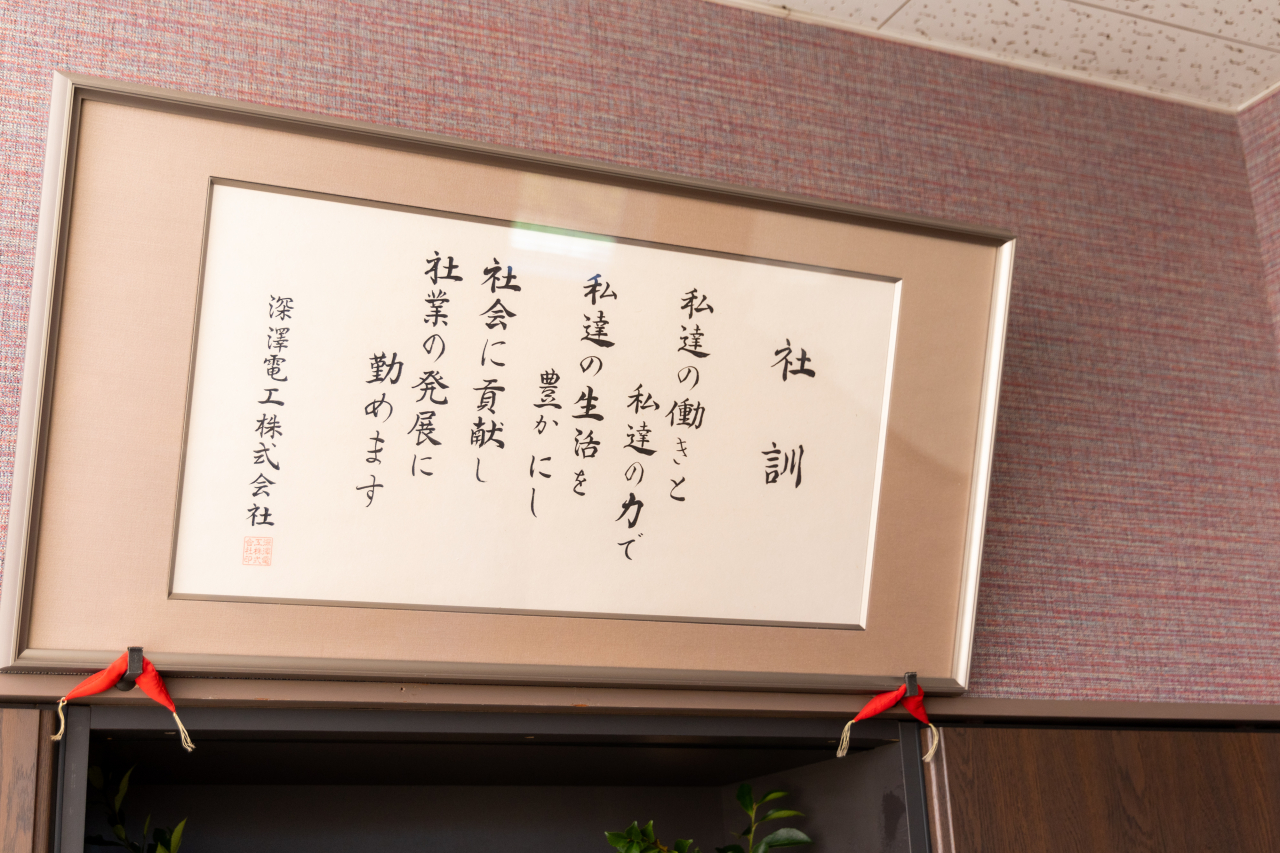 社訓
私達の働きと
私達の力で
私達の生活を
豊かにし
社会に貢献し
社業の発展に
勤めます
深澤電工株式会社